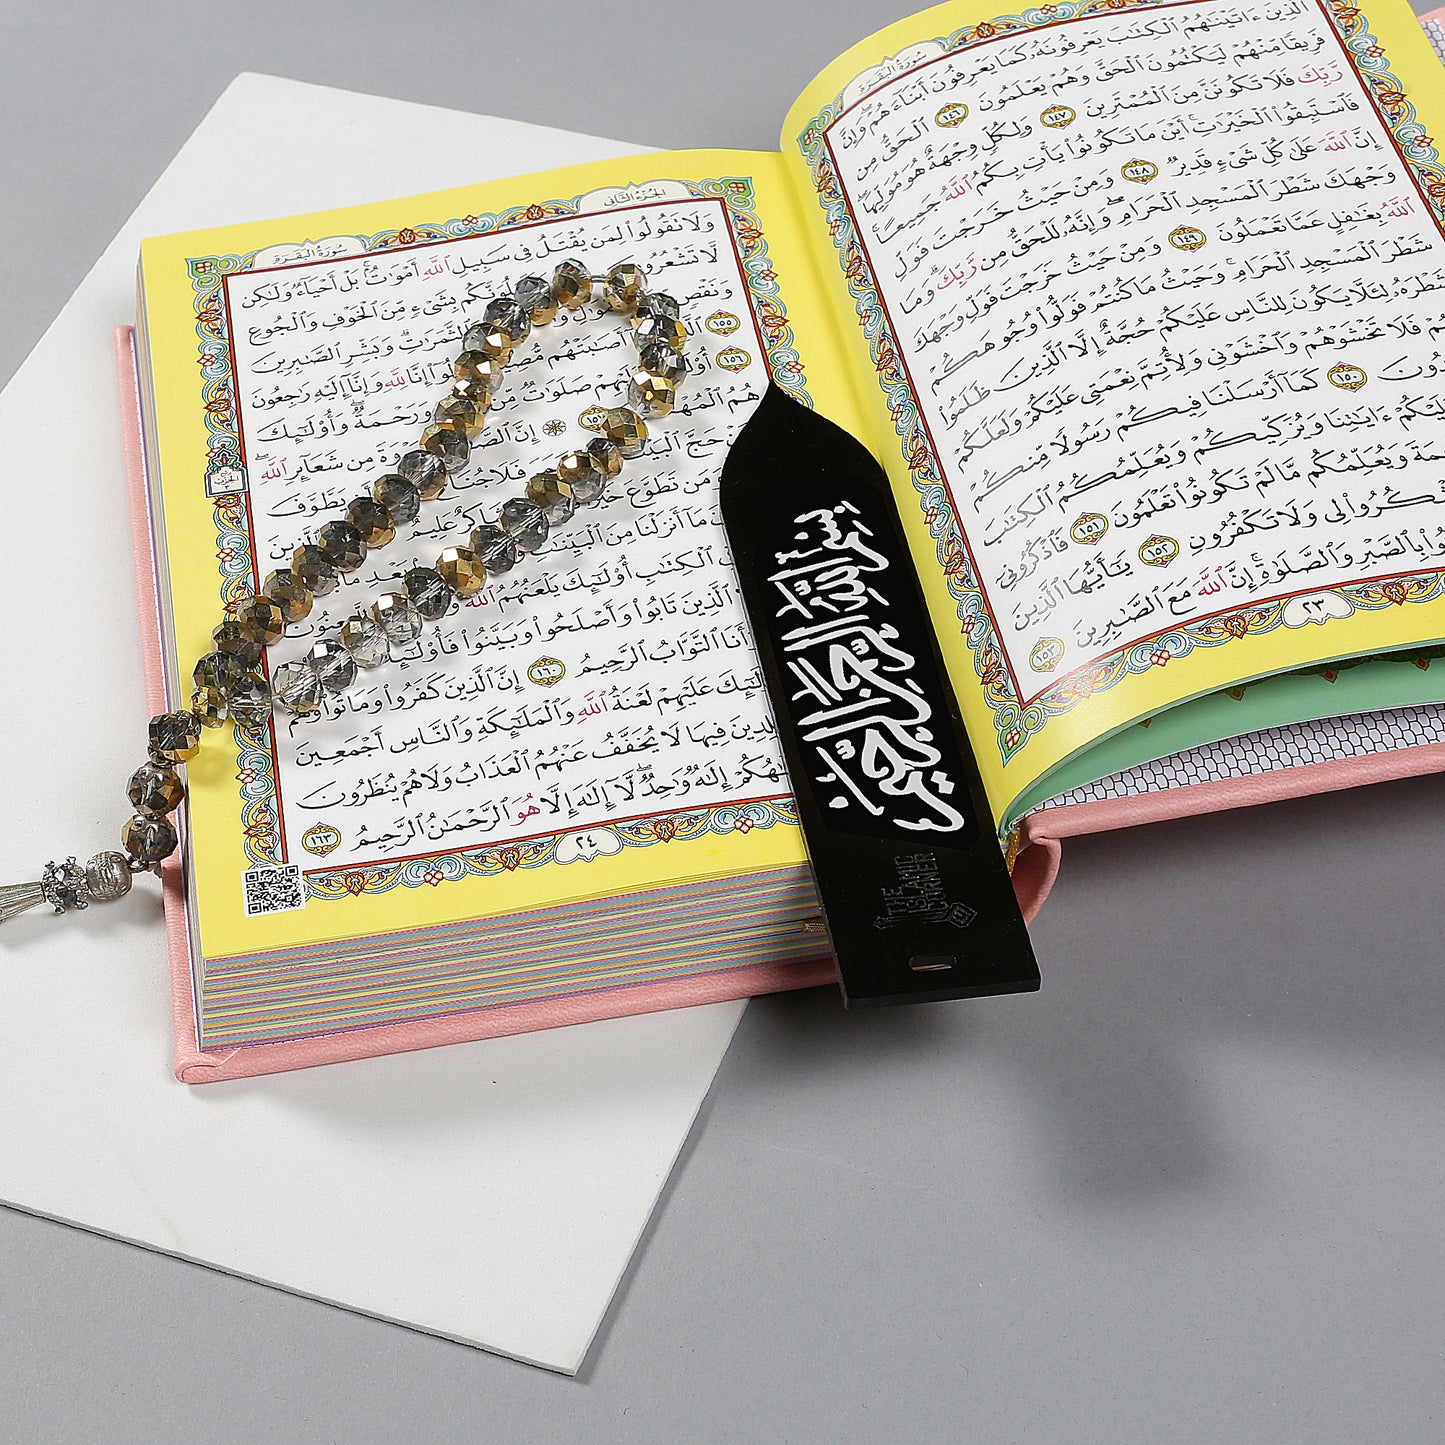 ٱلَّذِينَ ءَاتَيْنَٰهُمُ ٱلْكِتَٰبَ يَعْرِفُونَهُۥ كَمَا يَعْرِفُونَ أَبْنَآءَهُمْ ۖ وَإِنَّ
سُورَةُ ٱلْبَقَرَةِ
فَرِيقًا مِّنْهُمْ لَيَكْتُمُونَ ٱلْحَقَّ وَهُمْ يَعْلَمُونَ ١٤٦ ٱلْحَقُّ مِن
رَّبِّكَ فَلَا تَكُونَنَّ مِنَ ٱلْمُمْتَرِينَ ١٤٧ وَلِكُلٍّ وِجْهَةٌ هُوَ مُوَلِّيهَا
فَٱسْتَبِقُوا۟ ٱلْخَيْرَٰتِ ۚ أَيْنَ مَا تَكُونُوا۟ يَأْتِ بِكُمُ ٱللَّهُ جَمِيعًا ۚ
إِنَّ ٱللَّهَ عَلَىٰ كُلِّ شَىْءٍ قَدِيرٌ ١٤٨ وَمِنْ حَيْثُ خَرَجْتَ فَوَلِّ
وَجْهَكَ شَطْرَ ٱلْمَسْجِدِ ٱلْحَرَامِ ۖ وَإِنَّهُۥ لَلْحَقُّ مِن رَّبِّكَ ۗ وَمَا
ٱللَّهُ بِغَٰفِلٍ عَمَّا تَعْمَلُونَ ١٤٩ وَمِنْ حَيْثُ خَرَجْتَ فَوَلِّ وَجْهَكَ
شَطْرَ ٱلْمَسْجِدِ ٱلْحَرَامِ ۚ وَحَيْثُ مَا كُنتُمْ فَوَلُّوا۟ وُجُوهَكُمْ
شَطْرَهُۥ لِئَلَّا يَكُونَ لِلنَّاسِ عَلَيْكُمْ حُجَّةٌ إِلَّا ٱلَّذِينَ ظَلَمُوا۟
فَلَا تَخْشَوْهُمْ وَٱخْشَوْنِى وَلِأُتِمَّ نِعْمَتِى عَلَيْكُمْ وَلَعَلَّكُمْ
١٥٠ كَمَآ أَرْسَلْنَا فِيكُمْ رَسُولًا مِّنكُمْ
ءَايَٰتِنَا وَيُزَكِّيكُمْ وَيُعَلِّمُكُمُ ٱلْكِتَٰبَ
وَيُعَلِّمُكُم مَّا لَمْ تَكُونُوا۟ تَعْلَمُونَ ١٥١ فَٱذْكُرُونِىٓ
لِى وَلَا تَكْفُرُونِ ١٥٢ يَٰٓأَيُّهَا ٱلَّذِينَ
بِٱلصَّبْرِ وَٱلصَّلَوٰةِ ۚ إِنَّ ٱللَّهَ مَعَ ٱلصَّٰبِرِينَ ١٥٣
٢٣
ٱلْجُزْءُ ٱلثَّانِى
سُورَةُ ٱلْبَقَرَةِ
وَلَا تَقُولُوا۟ لِمَن يُقْتَلُ فِى سَبِيلِ ٱللَّهِ أَمْوَٰتٌۢ ۚ بَلْ أَحْيَآءٌ وَلَٰكِن
لَّا تَشْعُرُونَ بِشَىْءٍ مِّنَ ٱلْخَوْفِ وَٱلْجُوعِ
وَنَقْصٍ وَٱلثَّمَرَٰتِ ۗ وَبَشِّرِ ٱلصَّٰبِرِينَ
١٥٥ أَصَٰبَتْهُم قَالُوٓا۟ إِنَّا لِلَّهِ وَإِنَّآ إِلَيْهِ رَٰجِعُونَ
١٥٦ عَلَيْهِمْ صَلَوَٰتٌ مِّن وَرَحْمَةٌ ۖ وَأُو۟لَٰٓئِكَ
هُمُ ١٥٧ إِنَّ مِن شَعَآئِرِ ٱللَّهِ ۖ
حَجَّ فَلَا جُنَاحَ يَطَّوَّفَ
وَمَن تَطَوَّعَ شَاكِرٌ عَلِيمٌ
مَآ أَنزَلْنَا مِنَ ٱلْبَيِّنَٰتِ
ٱلْكِتَٰبِ ۙ أُو۟لَٰٓئِكَ يَلْعَنُهُمُ ٱللَّهُ
ٱلَّذِينَ تَابُوا۟ وَأَصْلَحُوا۟ وَبَيَّنُوا۟
وَأَنَا ٱلتَّوَّابُ ٱلرَّحِيمُ ١٦٠ إِنَّ ٱلَّذِينَ كَفَرُوا۟ وَمَاتُوا۟ وَهُمْ
عَلَيْهِمْ لَعْنَةُ ٱللَّهِ وَٱلْمَلَٰٓئِكَةِ وَٱلنَّاسِ أَجْمَعِينَ
فِيهَا ۖ لَا يُخَفَّفُ عَنْهُمُ ٱلْعَذَابُ وَلَا هُمْ يُنظَرُونَ
إِلَٰهٌ وَٰحِدٌ ۖ لَّآ إِلَٰهَ إِلَّا هُوَ ٱلرَّحْمَٰنُ ٱلرَّحِيمُ ١٦٣
٢٤
بسم الله الرحمن الرحيم
THE
ISLAMIC
CORNER